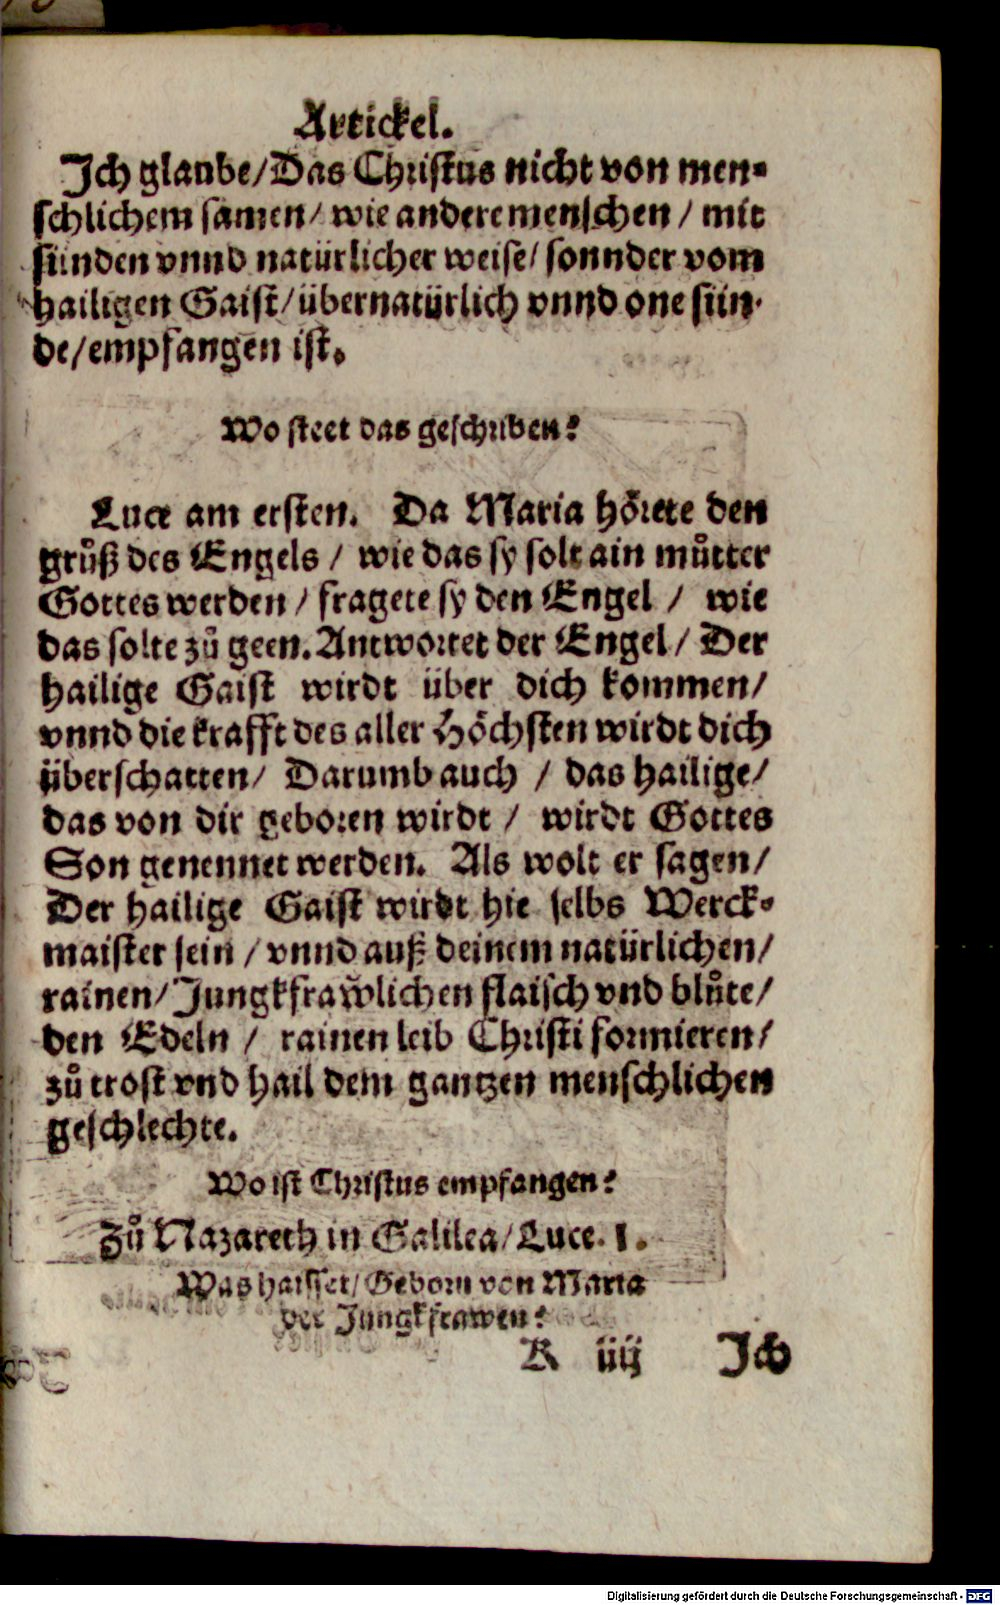 Artickel.
Ich glaube/Das Christus nicht von men⸗
schlichem samen/ wie andere menschen / mit
sünden vnnd natürlicher weise/ sonnder vom
hailigen Gaist/übernatürlich vnnd one sün⸗
de/empfangen ist.
Wo steet das geschriben?
Luce am ersten. Da Maria hörete den
grůß des Engels / wie das sy solt ain můtter
Gottes werden / fragete sy den Engel / wie
das solte zů geen. Antwortet der Engel / Der
hailige Gaist wirdt über dich kommen/
vnnd die krafft des aller Höchsten wirdt dich
überschatten/ Darumb auch / das hailige/
das von dir geboren wirdt / wirdt Gottes
Son genennet werden. Als wolt er sagen/
Der hailige Gaist wirdt hie selbs Werck⸗
maister sein / vnnd auß deinem natürlichen/
rainen/Jungkfrawlichen flaisch vnd blůte/
den Edeln / rainen leib Christi formieren/
zů trost vnd hail dem gantzen menschlichen
geschlechte.
Wo ist Christus empfangen?
Zů Nazareth in Galilea/Luce. 1.
Was haisset/Geborn von Maria
der Jungkfrawen?
K iiij Ich
Digitalisierung gefördert durch die Deutsche Forschungsgemeinschaft - DFG